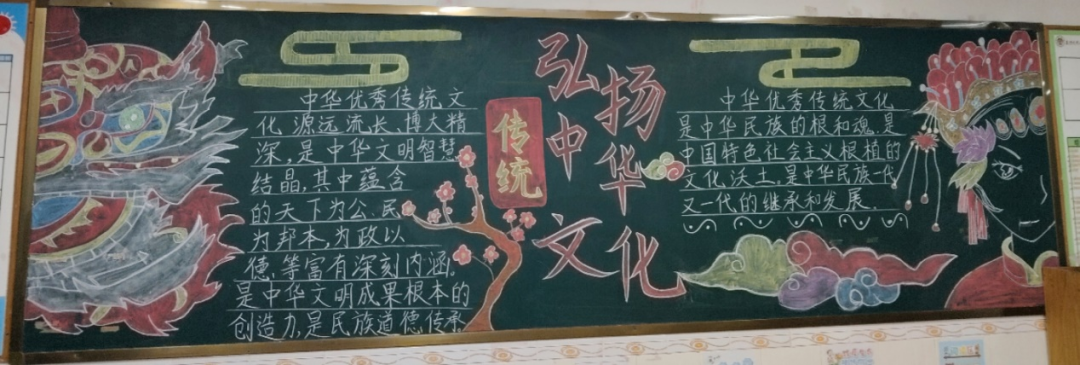 中华优秀传统文
化 源远流长、博大精
深,是中华文明智慧
结晶,其中蕴含
的天下为公、民
为邦本,为政以
德,等富有深刻内涵,
是中华文明成果根本的
创造力,是民族道德传承
传统
弘扬
中华
文化
中华优秀传统文化
是中华民族的根和魂,是
中国特色社会主义根植的
文化沃土,是中华民族一代
又一代的继承和发展.